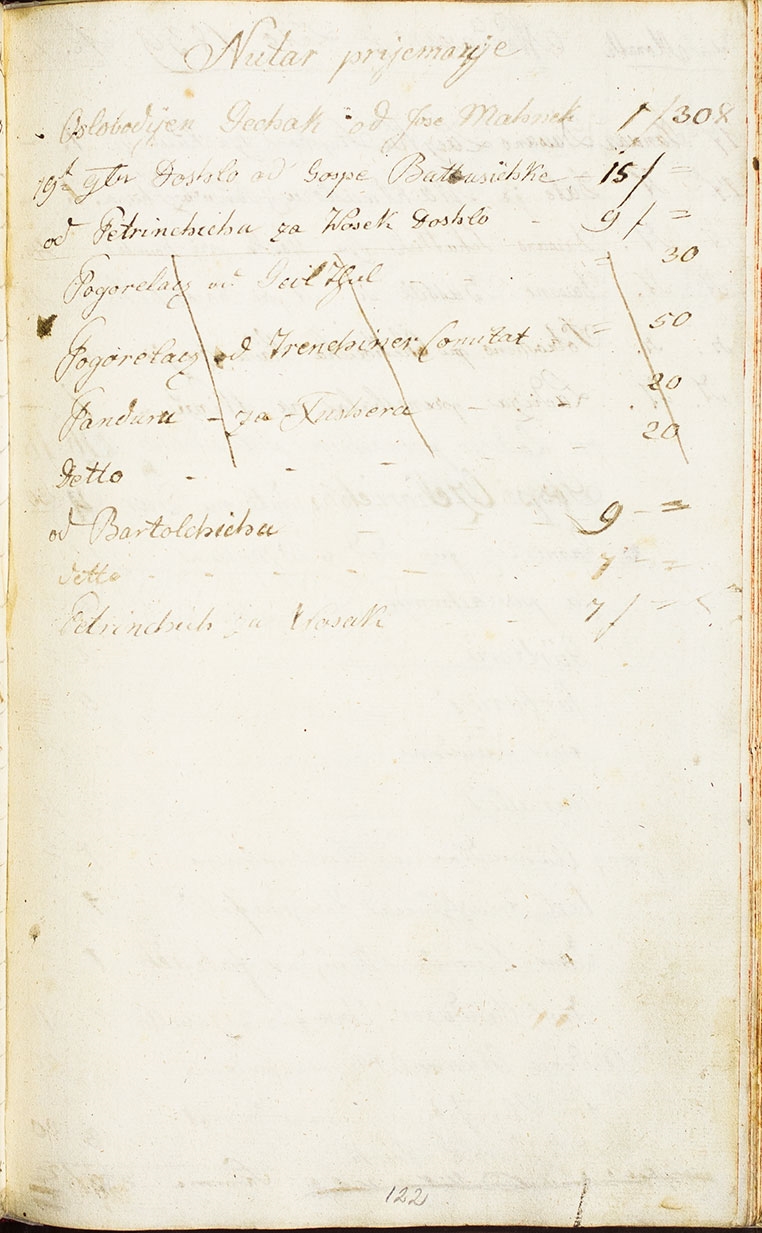 Nutar prijemanje
Oslobodjen Dechak od Jose Mahnek 1 f 30 x
19t 9br Doshlo od Gospe Battusichke - 15 f =
od Petrinchicha za Vosek Doshlo - 9 f =
Pogorelacz od = 30
Pogorelacz od Trenchiner Comitat = 50
Panduru - za - - 20
Detto - - - 20
od Bartolchicha - 9 - =
detto - - - - 7 - =
Petrinchich za Vosak - 7 f - =
122